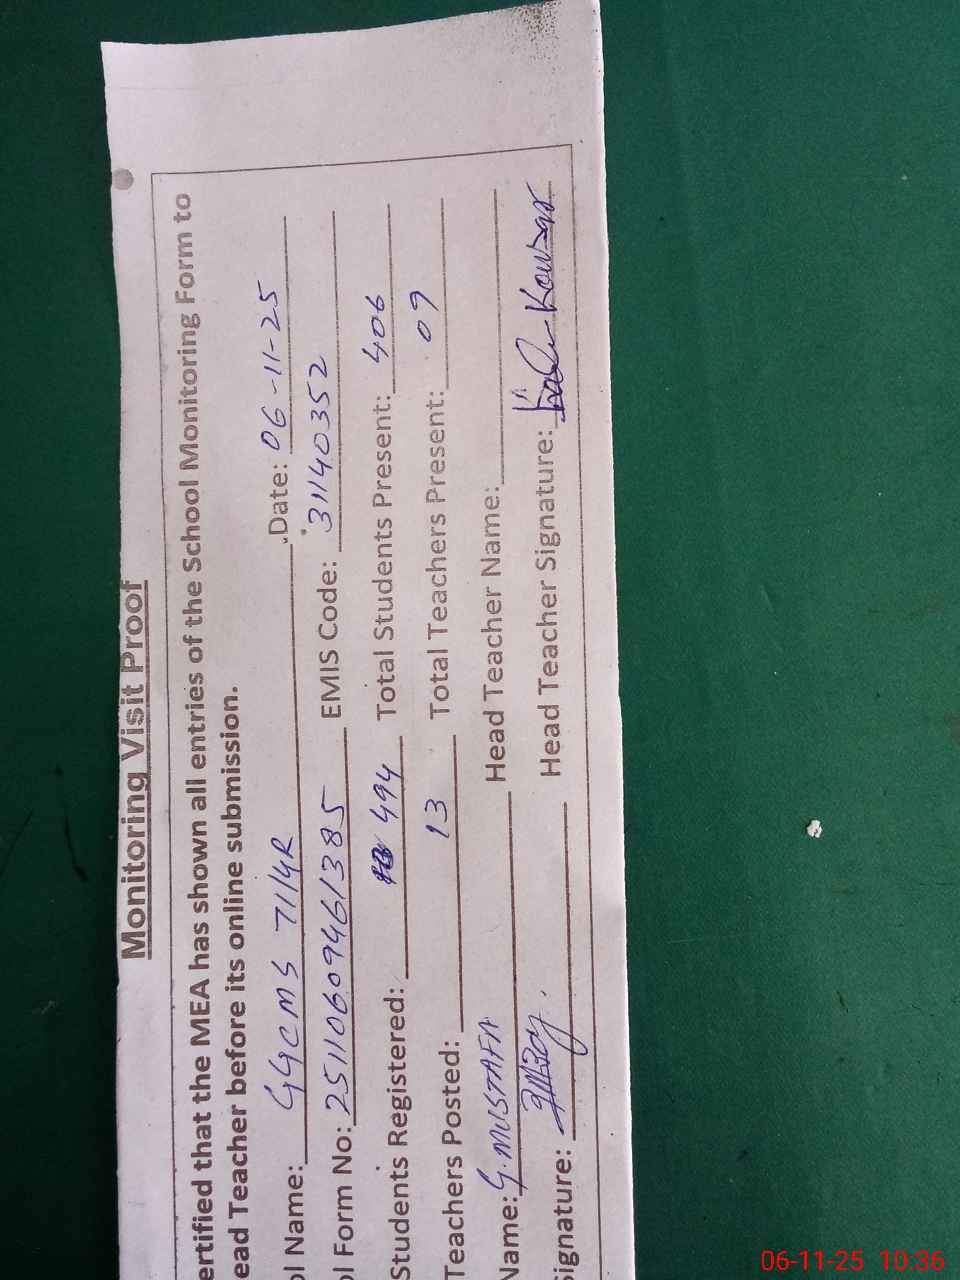 Monitoring Visit Proof
ertified that the MEA has shown all entries of the School Monitoring Form to
ead Teacher before its online submission.
ol Name: GGCMS 71/4R Date: 06-11-25
ol Form No: 25110609461385 EMIS Code: 31140352
Students Registered: 494 Total Students Present: 406
Teachers Posted: 13 Total Teachers Present: 09
Name: G. MUSTAFA Head Teacher Name:
ignature: Head Teacher Signature: Kousar
06-11-25 10:36